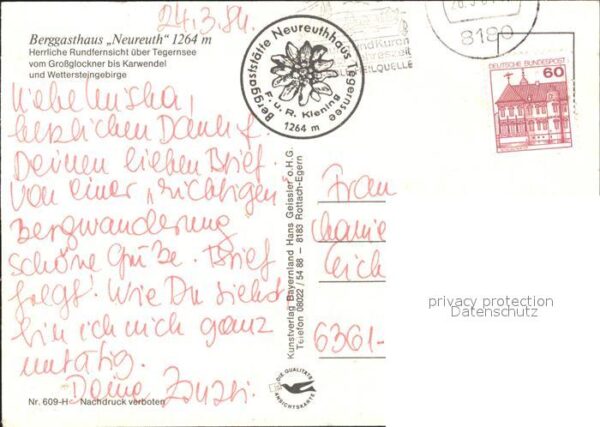 24.3.84.
Berggasthaus „Neureuth" 1264 m
Herrliche Rundfernsicht über Tegernsee
vom Großglockner bis Karwendel
und Wettersteingebirge
Liebe
herzlichen Dank f.
Deinen lieben Brief.
Von einer „richtigen"
Bergwanderung
schöne Grüße. Brief
folgt! Wie Du siehst
bin ich nich ganz
untätig.
Deine
Nr. 609-H Nachdruck verboten
Berggaststätte Neureuthhaus Tegernsee
F. u. R. Kiening
1264 m
8180
DEUTSCHE BUNDESPOST
60
Kunstverlag Bayernland Hans Geissler o.H.G.
Telefon 08022 / 54 88 – 8183 Rottach-Egern
DIE QUALITÄTS
ANSICHTSKARTE
Frau
6361-
privacy protection
Datenschutz